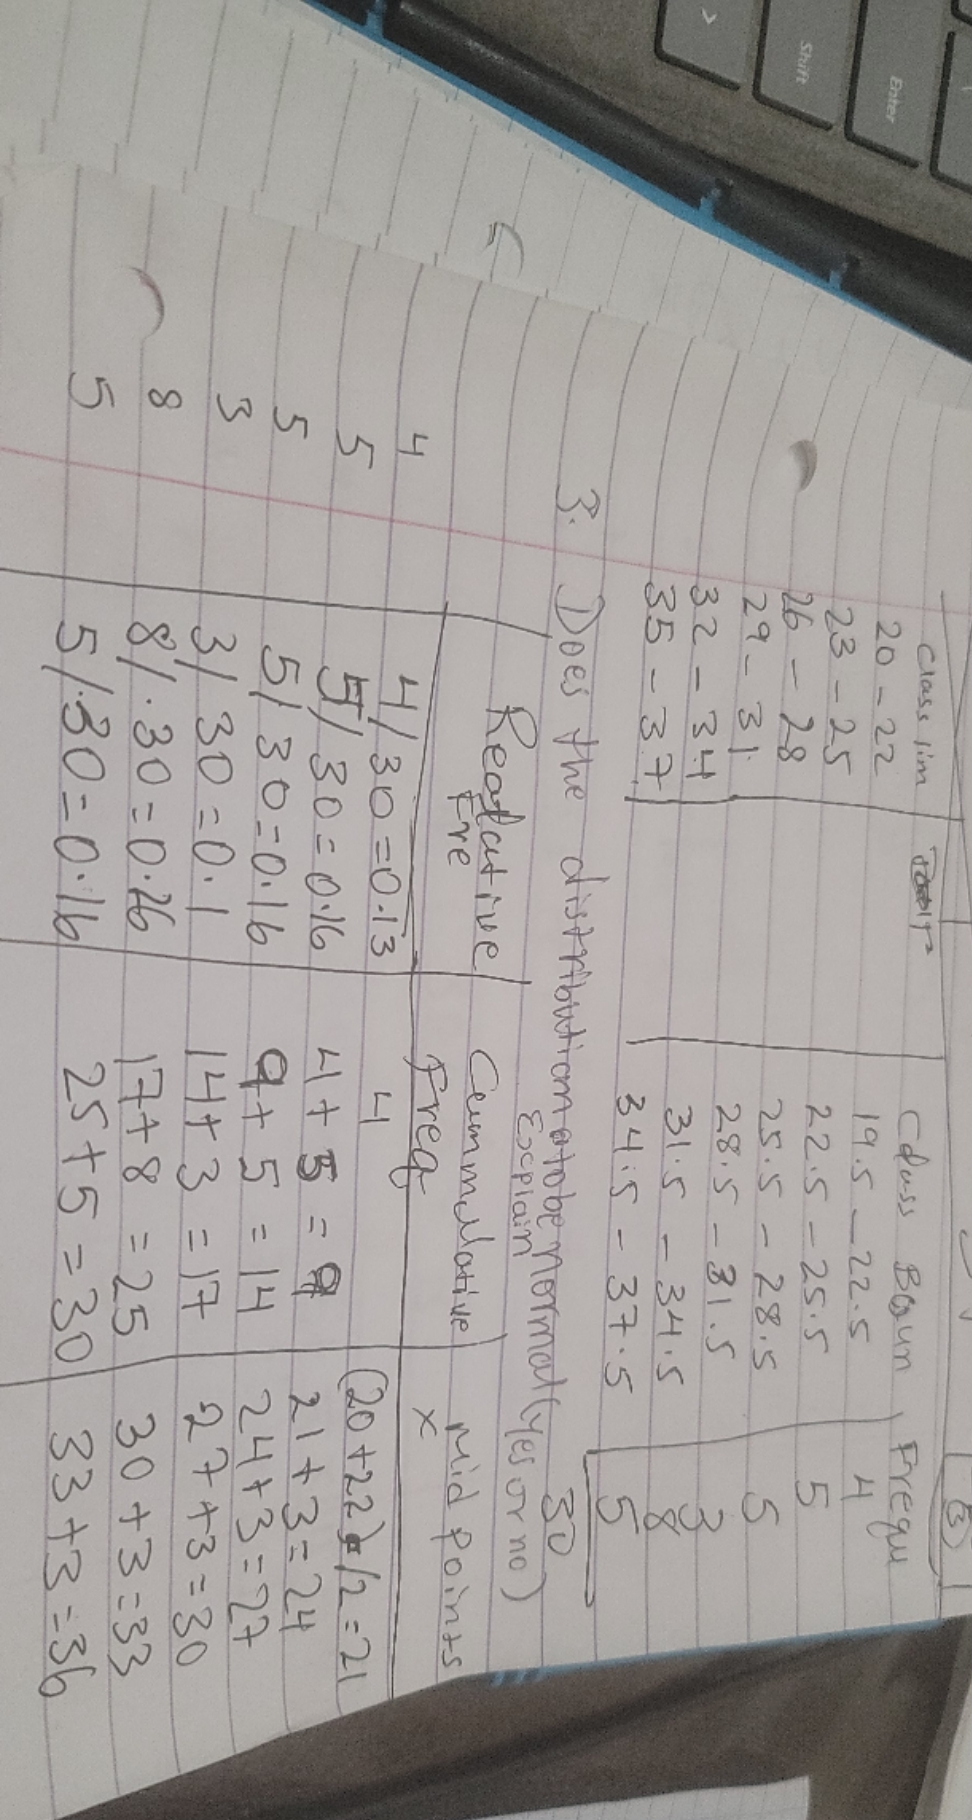 Enter
Shift
Class lim Class Boun Frequ
20 - 22 19.5 - 22.5 4
23 - 25 22.5 - 25.5 5
26 - 28 25.5 - 28.5 5
29 - 31 28.5 - 31.5 3
32 - 34 31.5 - 34.5 8
35 - 37 34.5 - 37.5 5
30
3. Does the distribution to be normal (yes or no)
Esclain
Realative Cummulative Mid points
Fre Freq x
4 4/30 = 0.13 4 (20+22)/2 = 21
5 5/30 = 0.16 4 + 5 = 9 21 + 3 = 24
5 5/30 = 0.16 9 + 5 = 14 24 + 3 = 27
3 3/30 = 0.1 14 + 3 = 17 27 + 3 = 30
8 8/.30 = 0.26 17 + 8 = 25 30 + 3 = 33
5 5/.30 = 0.16 25 + 5 = 30 33 + 3 = 36